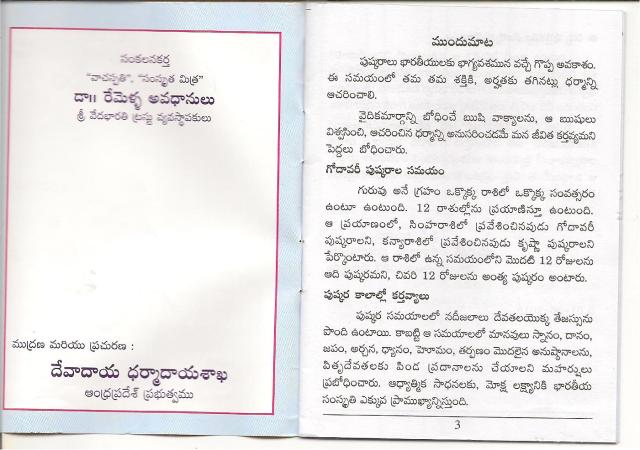 సంకలనకర్త
"వాచస్పతి", "సంస్కృత మిత్ర"
డా॥ రేమెళ్ళ అవధానులు
శ్రీ వేదభారతి ట్రస్టు వ్యవస్థాపకులు
ముద్రణ మరియు ప్రచురణ :
దేవాదాయ ధర్మాదాయశాఖ
ఆంధ్రప్రదేశ్ ప్రభుత్వము
ముందుమాట
పుష్కరాలు భారతీయులకు భాగ్యవశమున వచ్చే గొప్ప అవకాశం.
ఈ సమయంలో తమ తమ శక్తికి, అర్హతకు తగినట్లు ధర్మాన్ని
ఆచరించాలి.
వైదికమార్గాన్ని బోధించే ఋషి వాక్యాలను, ఆ ఋషులు
విశ్వసించి, ఆచరించిన ధర్మాన్ని అనుసరించడమే మన జీవిత కర్తవ్యమని
పెద్దలు బోధించారు.
గోదావరీ పుష్కరాల సమయం
గురువు అనే గ్రహం ఒక్కొక్క రాశిలో ఒక్కొక్క సంవత్సరం
ఉంటూ ఉంటుంది. 12 రాశుల్లోను ప్రయాణిస్తూ ఉంటుంది.
ఆ ప్రయాణంలో, సింహరాశిలో ప్రవేశించినపుడు గోదావరీ
పుష్కరాలని, కన్యారాశిలో ప్రవేశించినపుడు కృష్ణా పుష్కరాలని
పేర్కొంటారు. ఆ రాశిలో ఉన్న సమయంలోని మొదటి 12 రోజులను
ఆది పుష్కరమని, చివరి 12 రోజులను అంత్య పుష్కరం అంటారు.
పుష్కర కాలాల్లో కర్తవ్యాలు
పుష్కర సమయాలలో నదీజలాలు దేవతలయొక్క తేజస్సును
పొంది ఉంటాయి. కాబట్టి ఆ సమయాలలో మానవులు స్నానం, దానం,
జపం, అర్చన, ధ్యానం, హెూమం, తర్పణం మొదలైన అనుష్ఠానాలను,
పితృదేవతలకు పిండ ప్రదానాలను చేయాలని మహర్షులు
ప్రబోధించారు. ఆధ్యాత్మిక సాధనలకు, మోక్ష లక్ష్యానికి భారతీయ
సంస్కృతి ఎక్కువ ప్రాముఖ్యాన్నిస్తుంది.
3